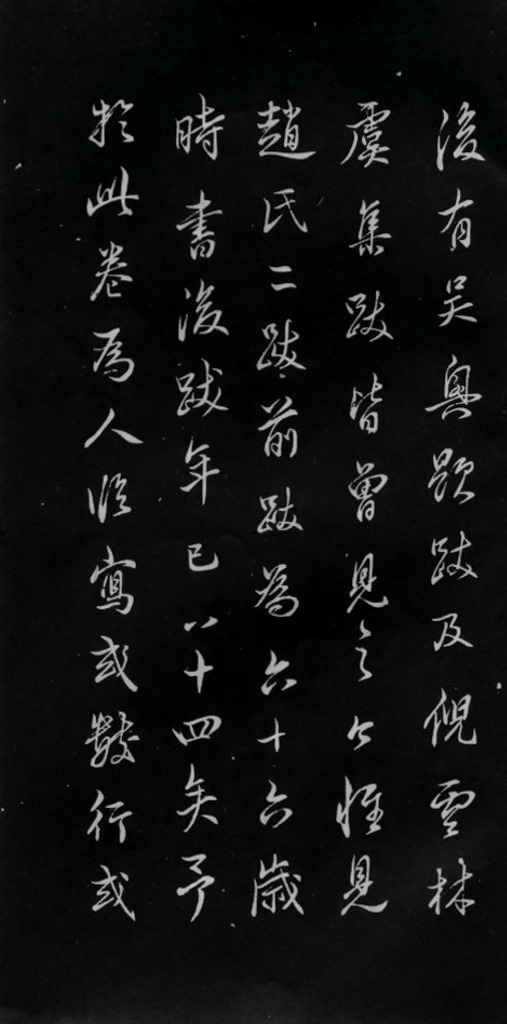 後有吳興題跋及倪雲林
虞集跋皆曾見之今惟見
趙氏二跋前跋為六十六歲
時書後跋年已八十四矣予
於此卷為人臨寫或數行或